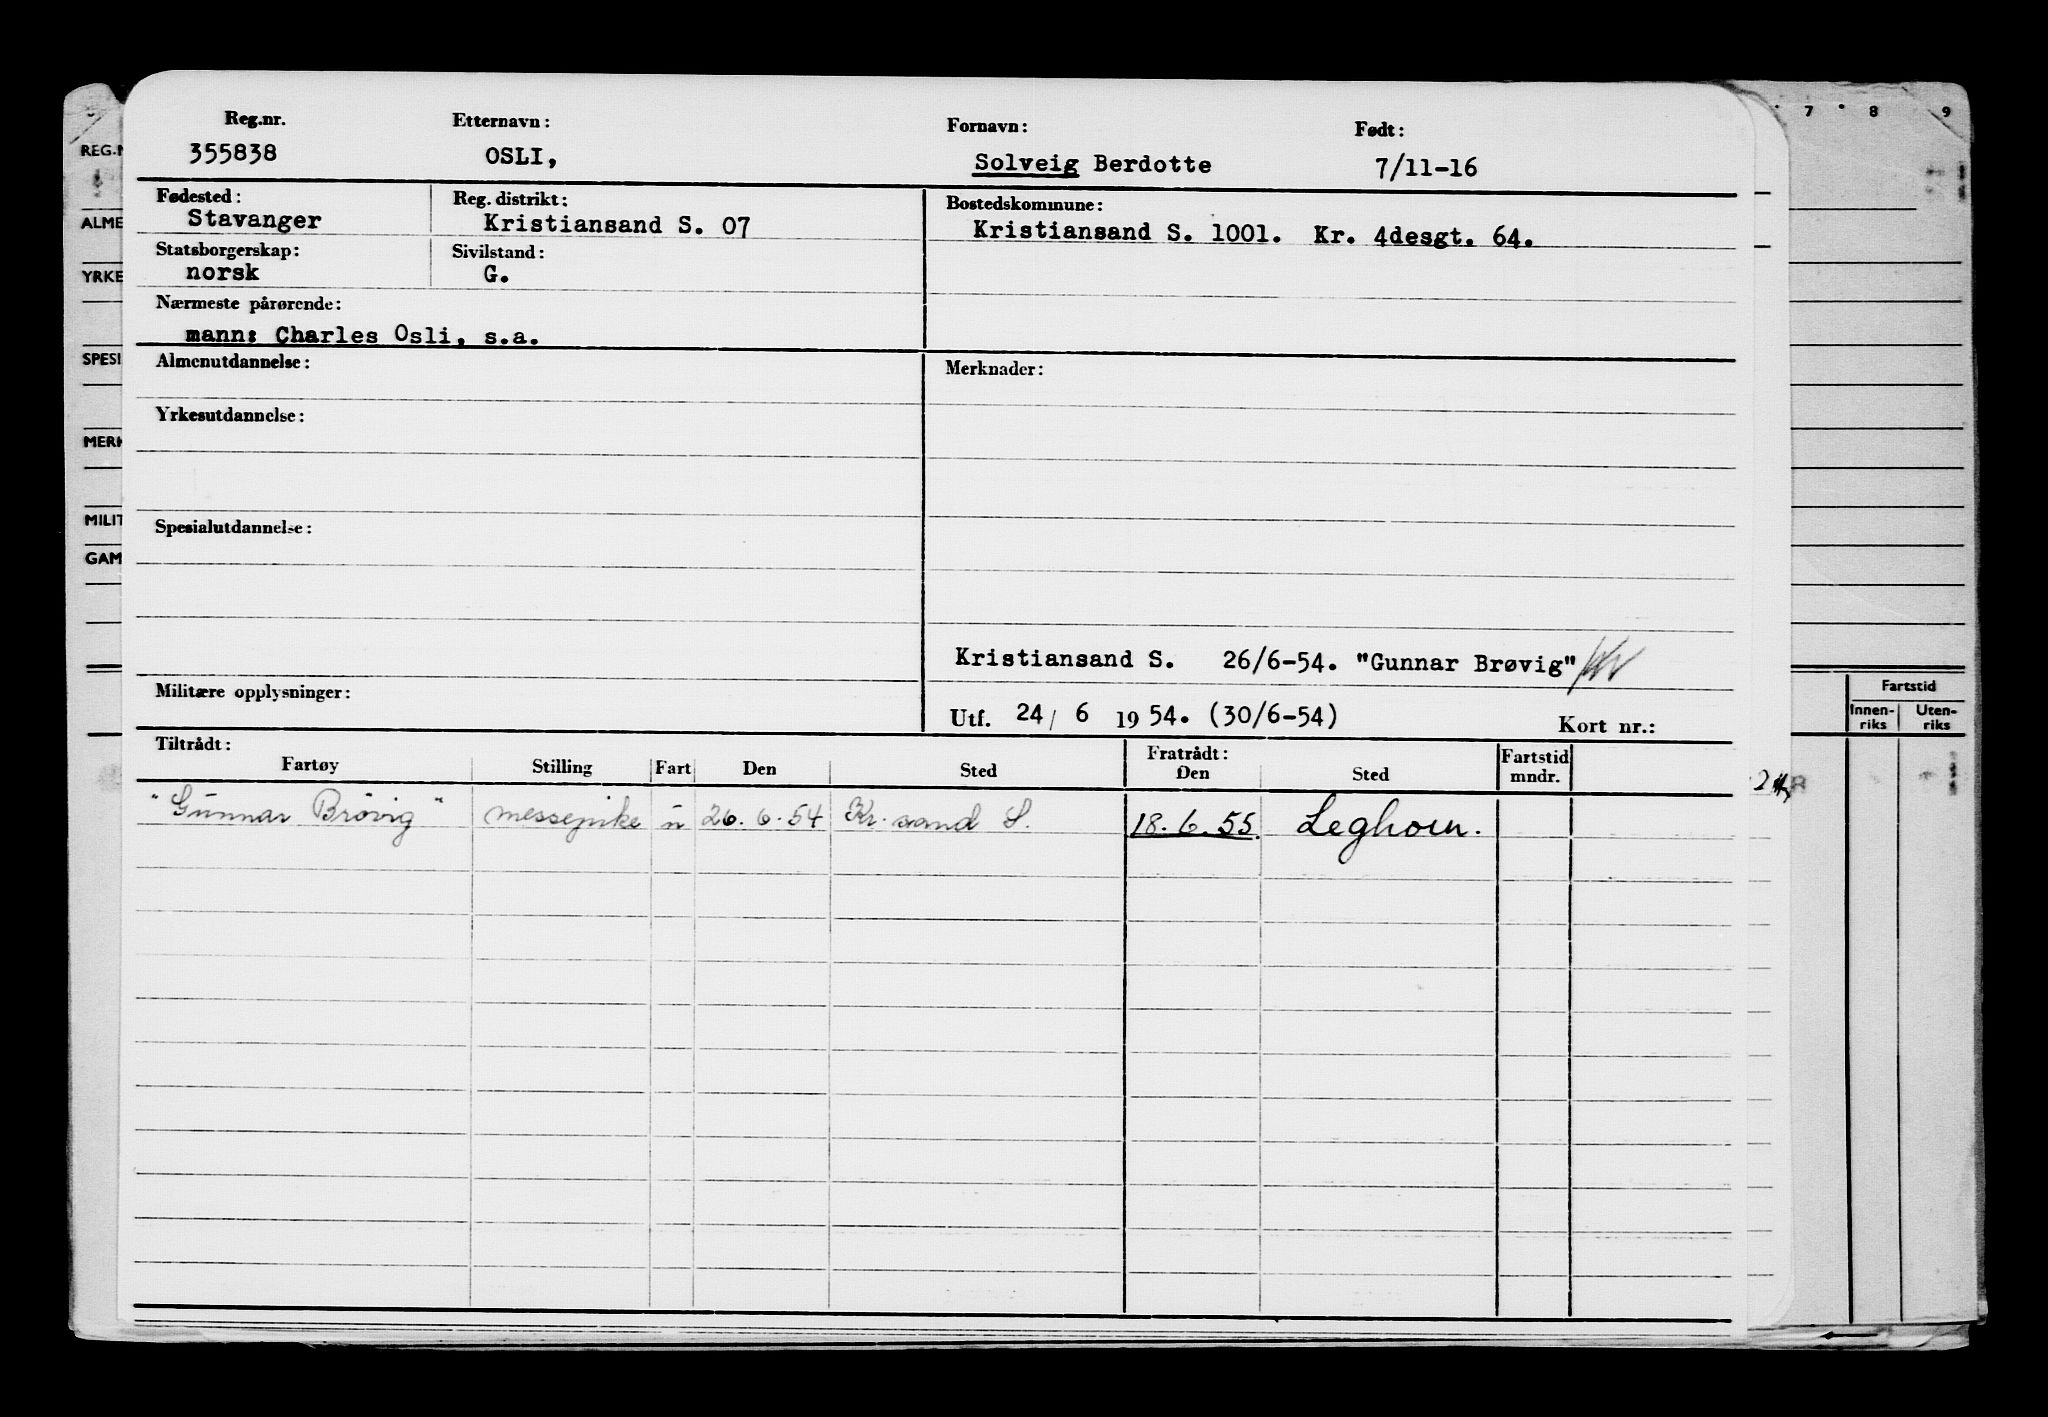 Reg.nr. Etternavn: Fornavn: Født:
355838 OSLI, Solveig Berdotte 7/11-16
Fødested: Reg. distrikt: Bostedskommune:
Stavanger Kristiansand S. 07 Kristiansand S. 1001. Kr. 4desgt. 64.
Statsborgerskap: Sivilstand:
norsk G.
Nærmeste pårørende:
mann: Charles Osli, s.a.
Almenutdannelse: Merknader:
Yrkesutdannelse:
Spesialutdannelse:
Kristiansand S. 26/6-54. "Gunnar Brøvig"
Militære opplysninger:
Utf. 24/ 6 1954. (30/6-54) Kort nr.:
Tiltrådt: Fratrådt: Fartstid
Fartøy Stilling Fart Den Sted Den Sted mndr.
"Gunnar Brövig" messepike u 26.6.54 Kr. sand S. 18.6.55. Leghorn.
7 8 9
REG.N
ALME
YRKE
SPESI
MERK
MILIT
GAM
Fartstid
Innen- Uten-
riks riks